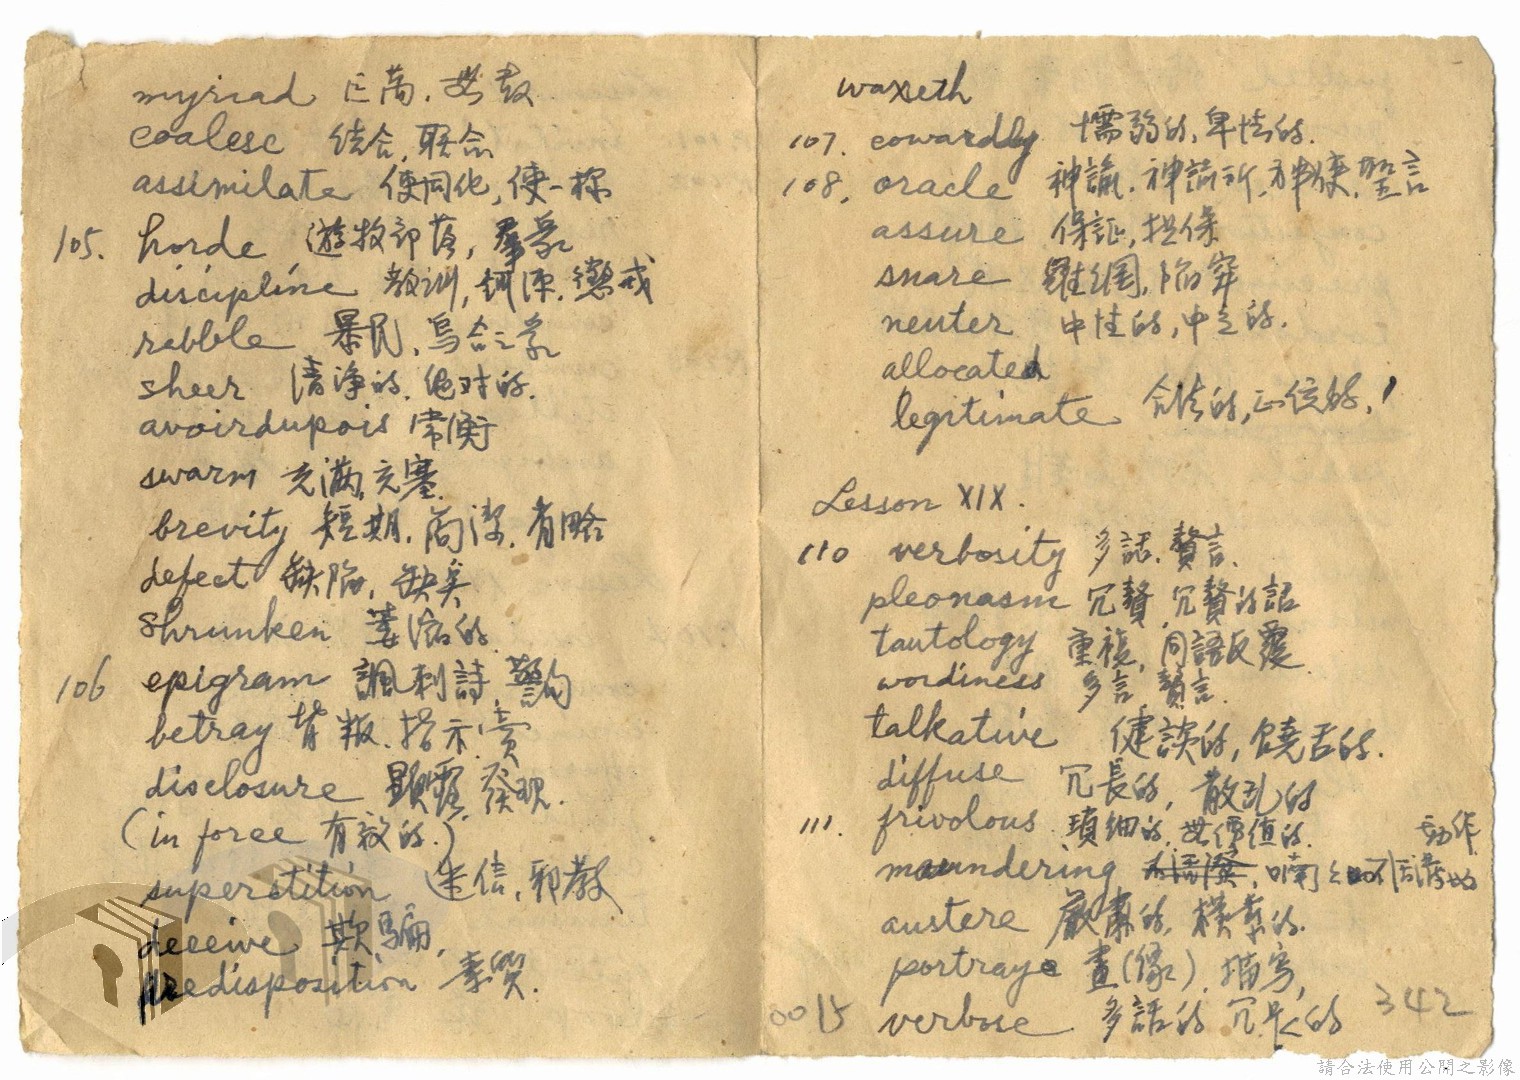 myriad 巨萬. 無数
coalesc 结合, 联合
assimilate 使同化, 使一樣
105. horde 遊牧部落, 羣衆
discipline 教訓, 訓练. 懲戒
rabble 暴民, 烏合之衆
sheer 清净的. 绝对的.
avoirdupois 常衡
swarm 充满, 充塞.
brevity 短期. 简潔. 省略
defect 缺陷, 缺点
shrunken 萎缩的
106 epigram 諷刺詩, 警句
betray 背叛. 指示. 賣
disclosure 顯露, 發現.
(in force 有效的.)
superstition 迷信, 邪教
deceive 欺騙,
predisposition 素質.
waxeth
107. cowardly 懦弱的, 卑怯的.
108. oracle 神諭. 神諭所, 神使, 聖言
assure 保証, 担保
snare 羅網, 陷穽
neuter 中性的, 中立的.
allocated
legitimate 合法的, 正統的,
Lesson XIX.
110 verbosity 多話. 贅言.
pleonasm 冗贅, 冗贅的語
tautology 重複, 同語反覆
wordiness 多言 贅言.
talkative 健談的, 饒舌的.
diffuse 冗長的, 散乱的
111. frivolous 瑣細的, 無價值的.
動作
maundering 喃喃 不活潑的
austere 嚴肅的, 樸素的.
portraye 畫(像). 描寫,
verbose 多話的 冗長的
0015
342
請合法使用公開之影像